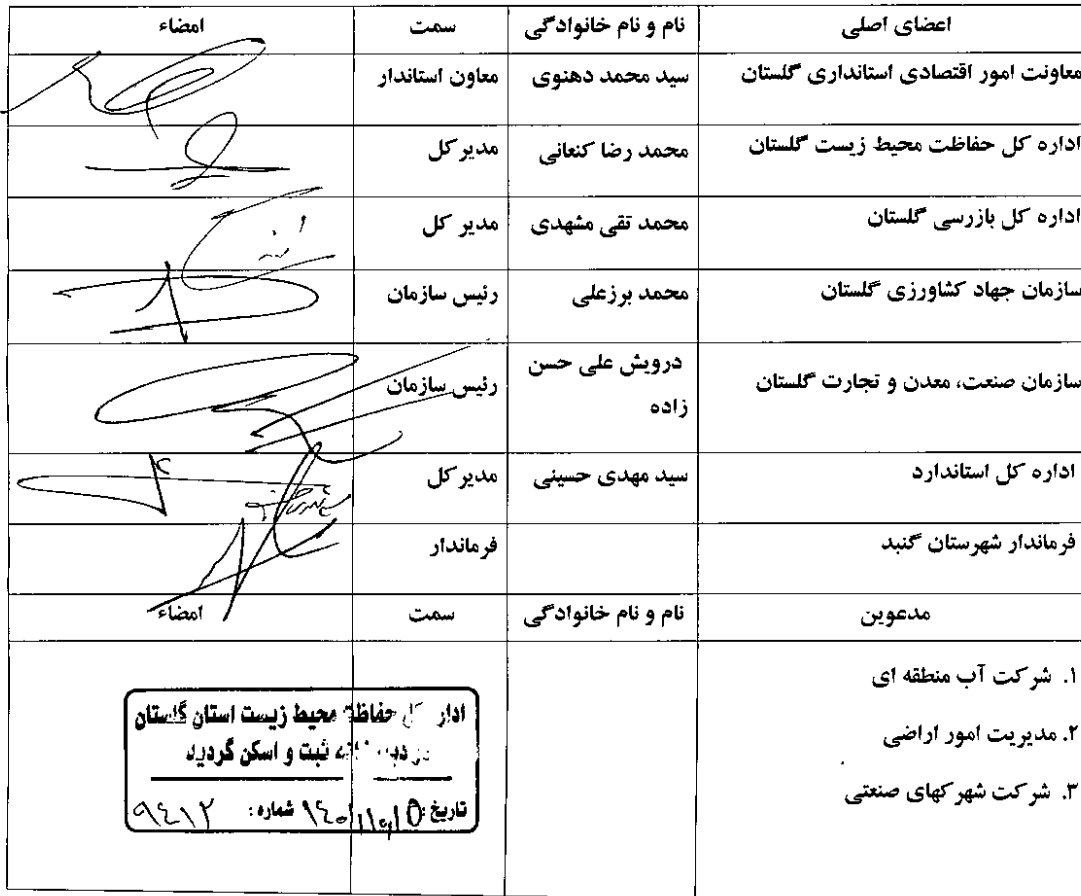 اعضای اصلی نام و نام خانوادگی سمت امضاء
معاونت امور اقتصادی استانداری گلستان سید محمد دهنوی معاون استاندار
اداره کل حفاظت محیط زیست گلستان محمد رضا کنعانی مدیر کل
اداره کل بازرسی گلستان محمد تقی مشهدی مدیر کل
سازمان جهاد کشاورزی گلستان محمد برزعلی رئیس سازمان
سازمان صنعت، معدن و تجارت گلستان درویش علی حسن رئیس سازمان
زاده
اداره کل استاندارد سید مهدی حسینی مدیر کل
فرماندار شهرستان گنبد فرماندار
مدعوین نام و نام خانوادگی سمت امضاء
۱. شرکت آب منطقه ای
۲. مدیریت امور اراضی
۳. شرکت شهرکهای صنعتی
کل حفاظت محیط زیست استان گلستان
ثبت و اسکن گردید
تاریخ: شماره: ۹۴۱۲